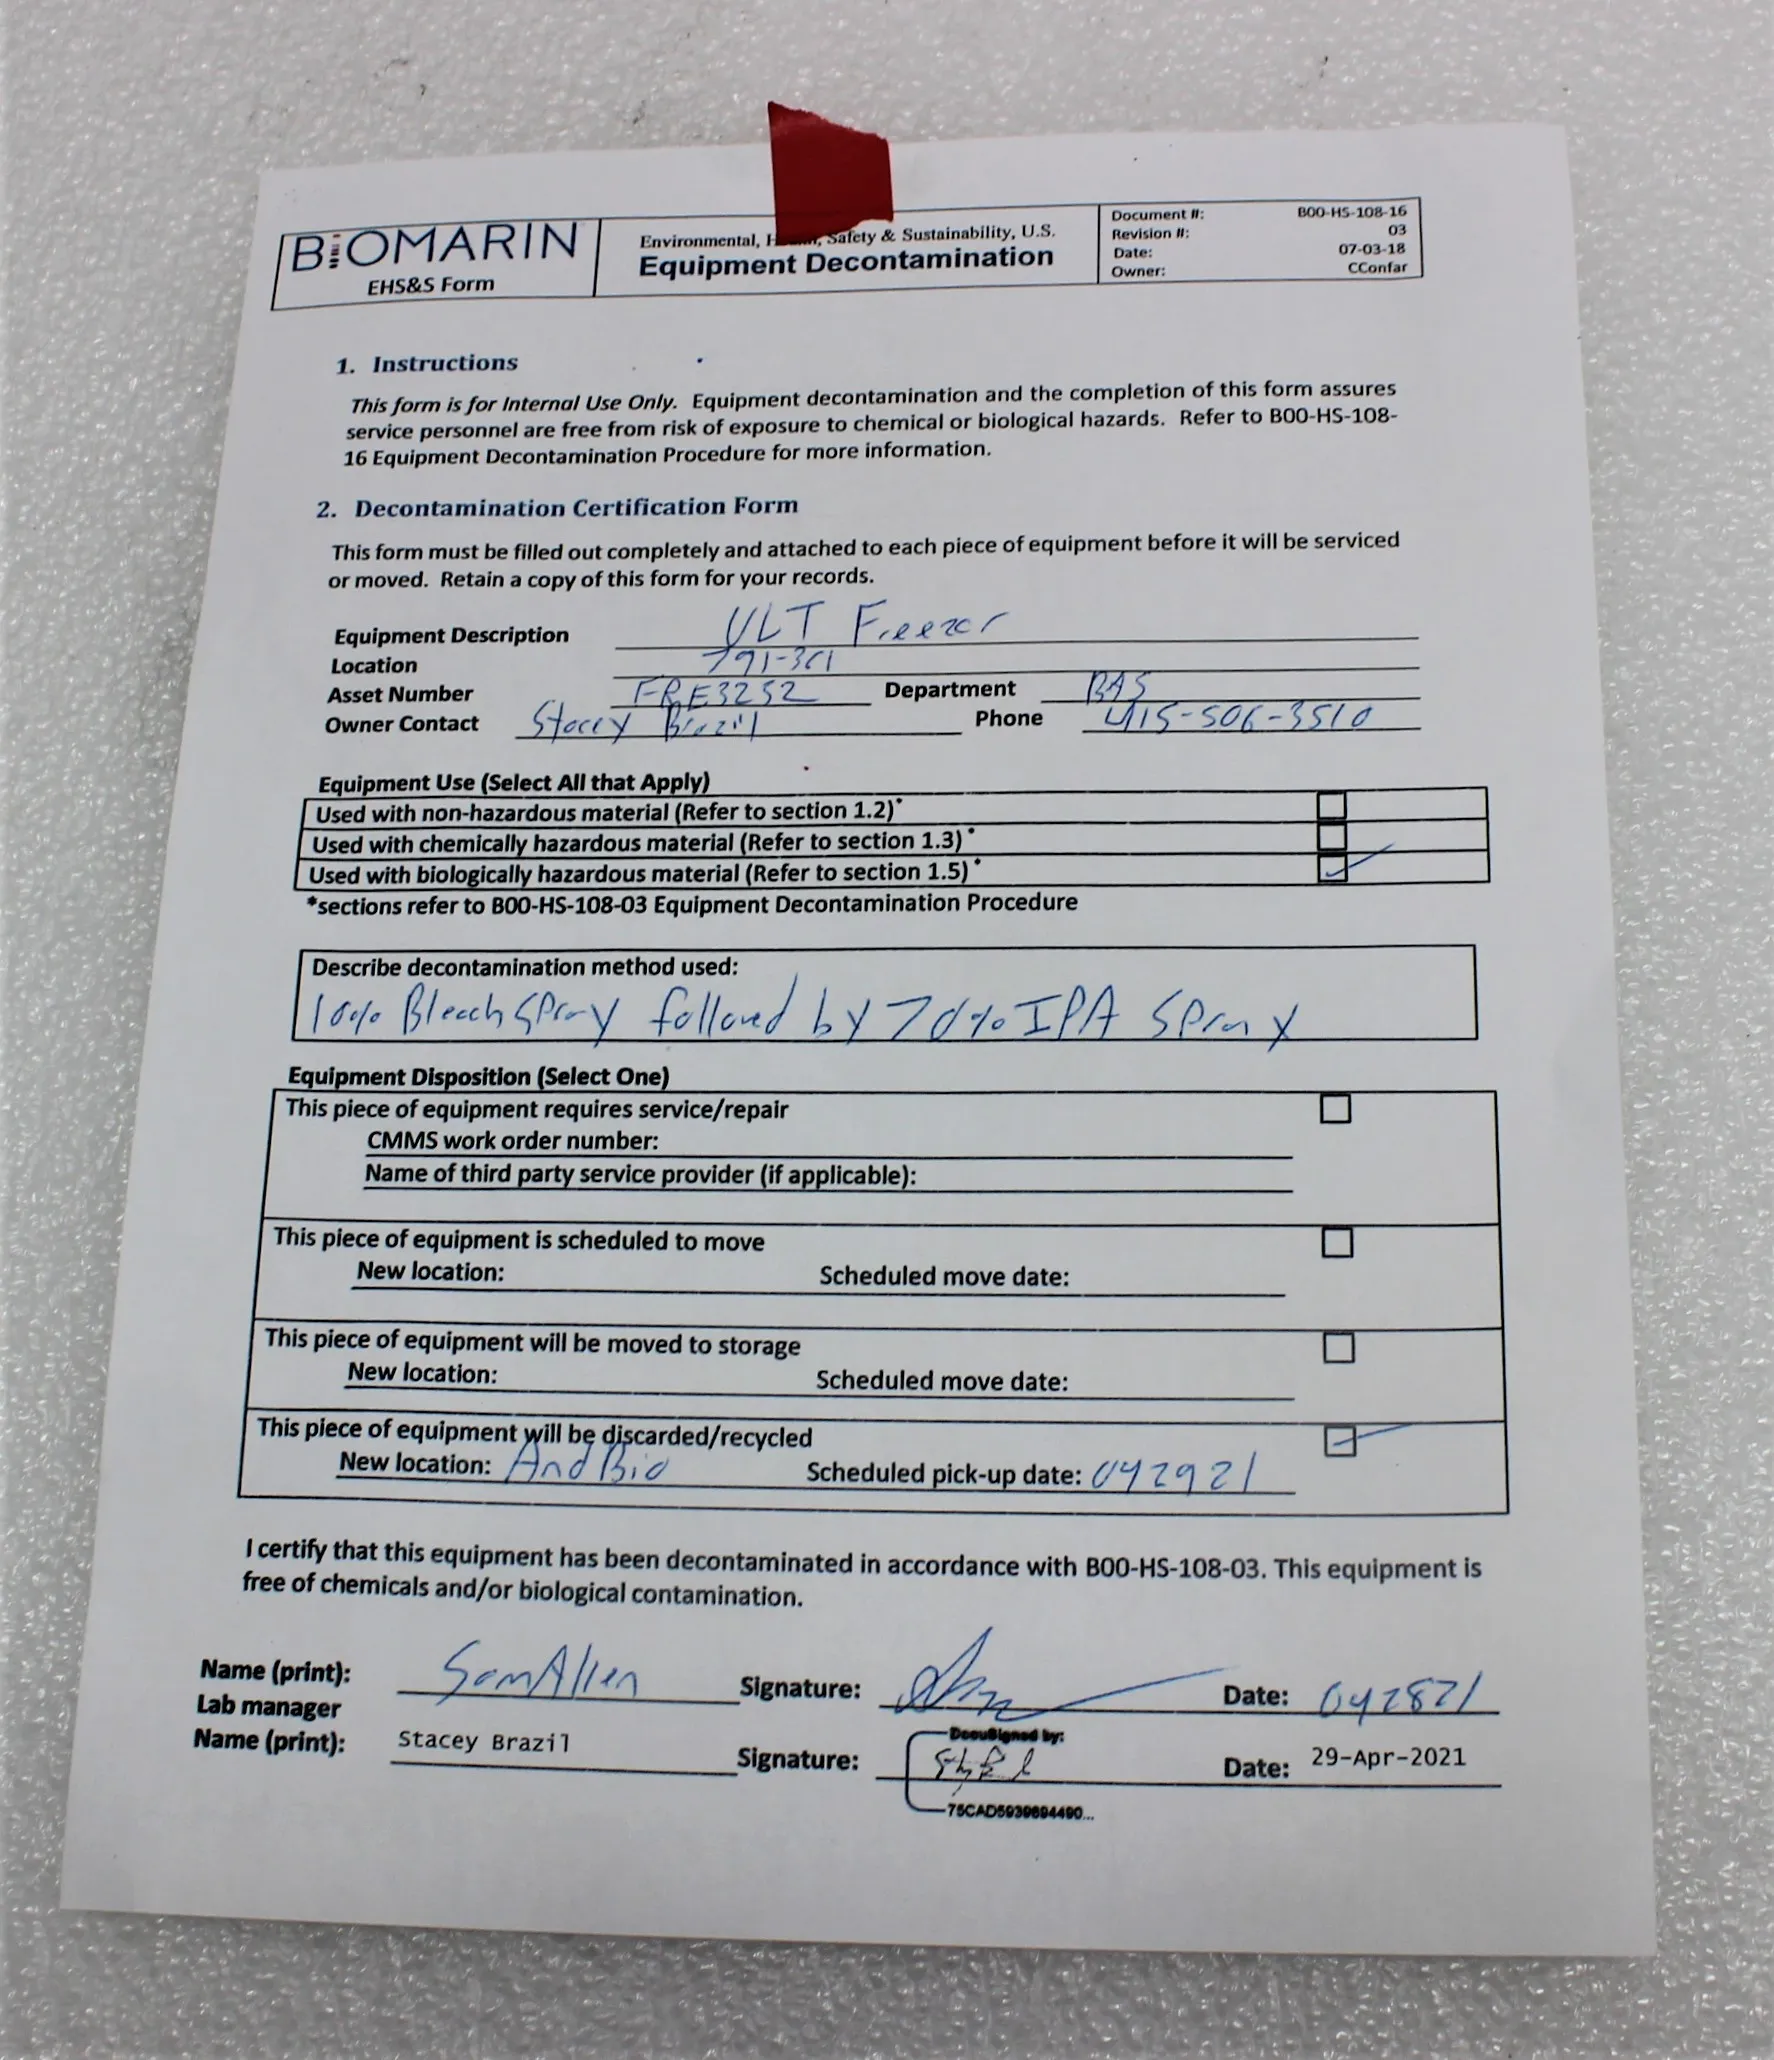 BiOMARIN
EHS&S Form
Environmental, Safety & Sustainability, U.S.
Equipment Decontamination
Document #: B00-HS-108-16
Revision #: 03
Date: 07-03-18
Owner: CConfar
1. Instructions
This form is for Internal Use Only. Equipment decontamination and the completion of this form assures
service personnel are free from risk of exposure to chemical or biological hazards. Refer to B00-HS-108-
16 Equipment Decontamination Procedure for more information.
2. Decontamination Certification Form
This form must be filled out completely and attached to each piece of equipment before it will be serviced
or moved. Retain a copy of this form for your records.
Equipment Description ULT Freezer
Location 791-301
Asset Number FRE3252 Department BAS
Owner Contact Stacey Brazil Phone 415-506-3510
Equipment Use (Select All that Apply)
Used with non-hazardous material (Refer to section 1.2)*
Used with chemically hazardous material (Refer to section 1.3)*
Used with biologically hazardous material (Refer to section 1.5)*
*sections refer to B00-HS-108-03 Equipment Decontamination Procedure
Describe decontamination method used:
10% Bleach Spray followed by 70% IPA Spray
Equipment Disposition (Select One)
This piece of equipment requires service/repair
CMMS work order number:
Name of third party service provider (if applicable):
This piece of equipment is scheduled to move
New location: Scheduled move date:
This piece of equipment will be moved to storage
New location: Scheduled move date:
This piece of equipment will be discarded/recycled
New location: And Bio Scheduled pick-up date: 042921
I certify that this equipment has been decontaminated in accordance with B00-HS-108-03. This equipment is
free of chemicals and/or biological contamination.
Name (print): Sam Allen Signature: Date: 042821
Lab manager
Name (print): Stacey Brazil Signature: Date: 29-Apr-2021
DocuSigned by:
75CAD5939694490...